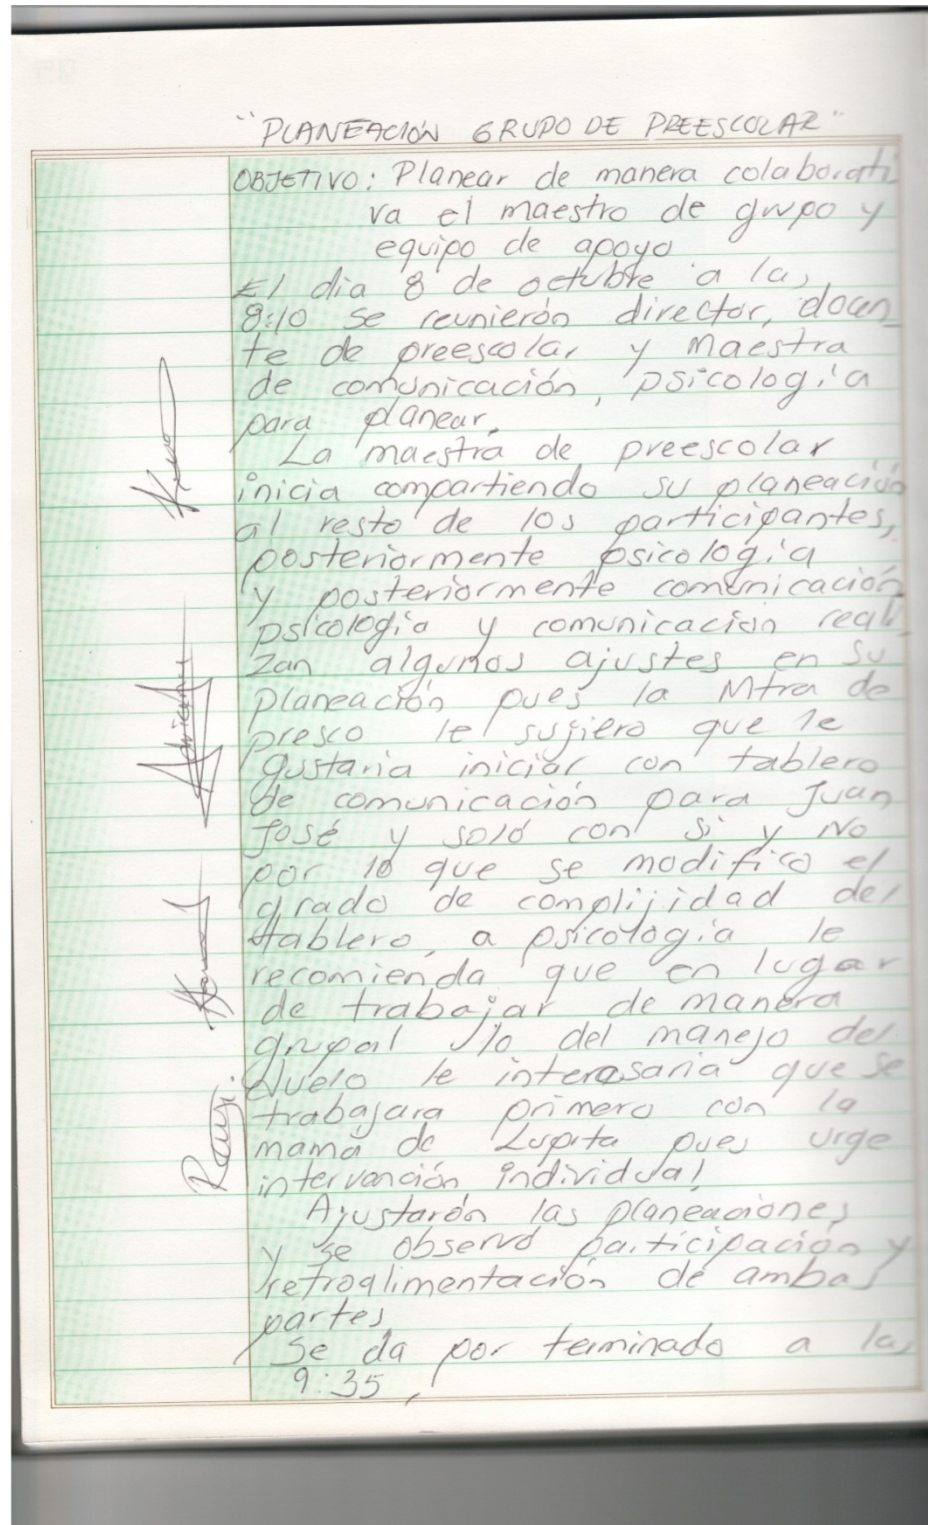 "PLANEACIÓN GRUPO DE PREESCOLAR"
OBJETIVO: Planear de manera colaborati
va el maestro de grupo y
equipo de apoyo
El dia 8 de octubre a las
8:10 se reunierón director, docen_
te de preescolar y maestra
de comunicación, psicología
para planear.
La maestra de preescolar
inicia compartiendo su planeación
al resto de los participantes,
posteriormente psicología
y posteriormente comunicación
psicología y comunicación reali_
zan algunos ajustes en su
planeación pues la Mtra de
presco le sujiero que le
gustaria iniciar con tablero
de comunicación para Juan
José y soló con si y No
por lo que se modifico el
grado de complijidad del
tablero, a psicología le
recomienda que en lugar
de trabajar de manera
grupal lo del manejo del
duelo le interesaria que se
trabajara primero con la
mamá de Lupita pues urge
intervención individual
Ajustarón las planeaciones
y se observó participación y
retroalimentación de ambas
partes
Se da por terminado a las
9:35,
Adriana